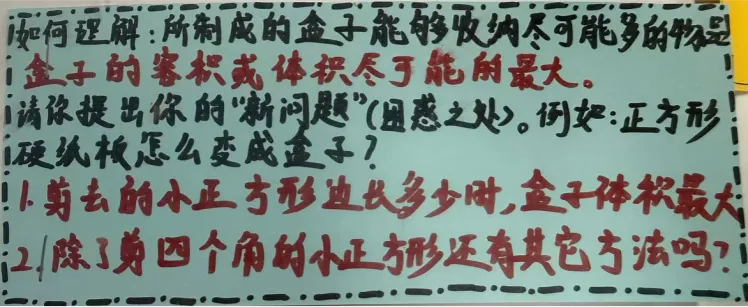 如何理解:所制成的盒子能够收纳尽可能多的物品
盒子的容积或体积尽可能的最大。
请你提出你的“新问题”(困惑之处)。例如:正方形
硬纸板怎么变成盒子?
1.剪去的小正方形边长多少时,盒子体积最大
2.除了剪四个角的小正方形还有其它方法吗?